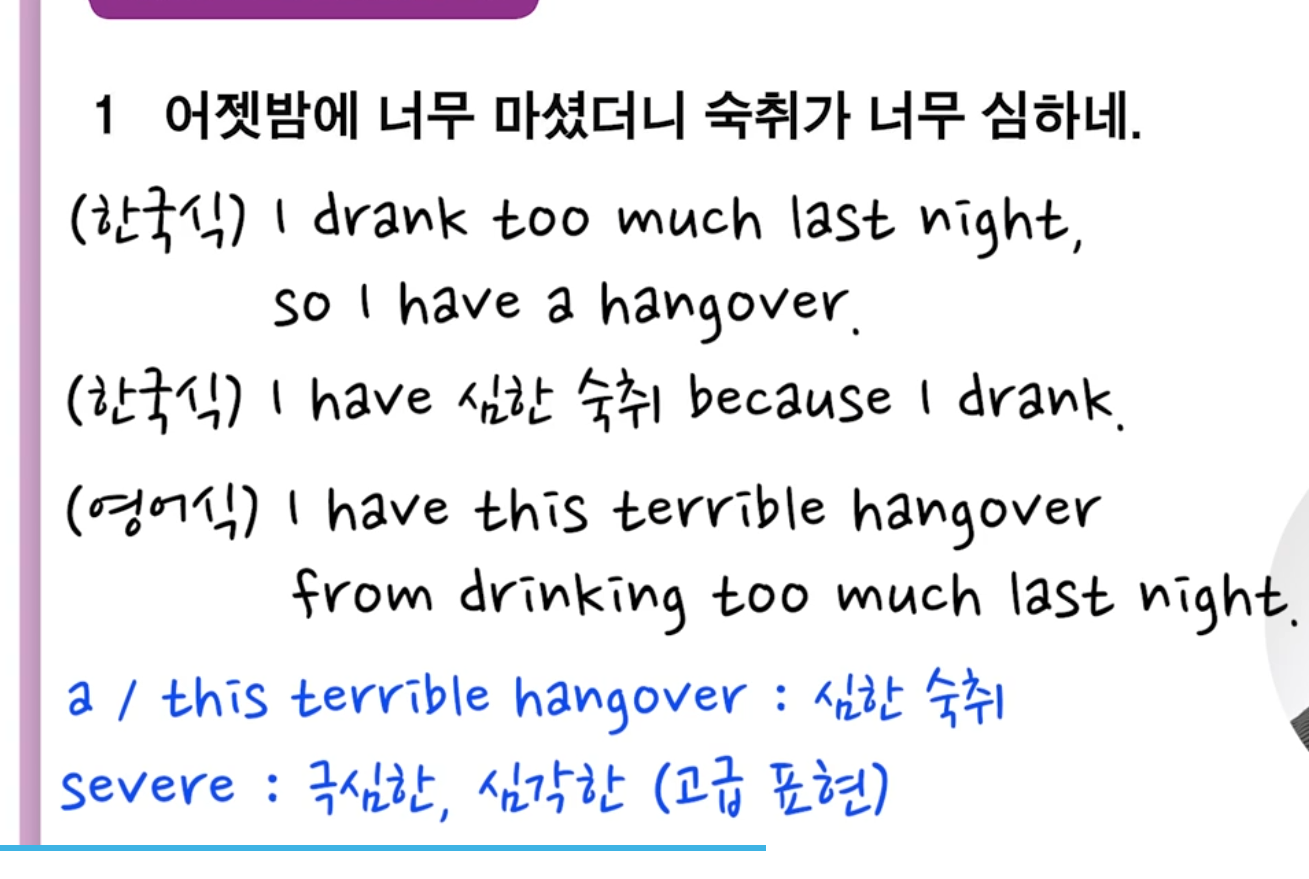 1 어젯밤에 너무 마셨더니 숙취가 너무 심하네.
(한국식) I drank too much last night,
so I have a hangover.
(한국식) I have 심한 숙취 because I drank.
(영어식) I have this terrible hangover
from drinking too much last night.
a / this terrible hangover : 심한 숙취
severe : 극심한, 심각한 (고급 표현)